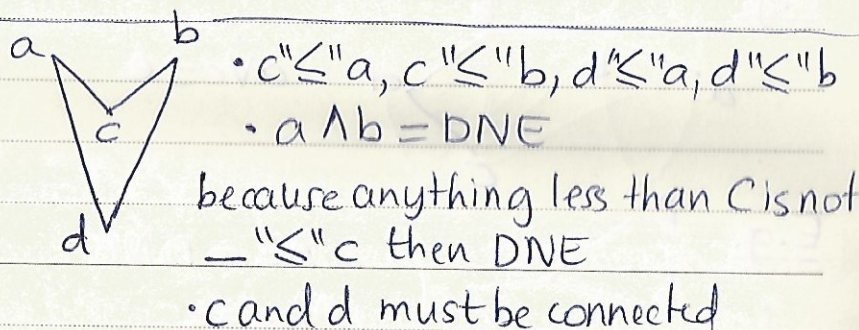 a b
• c"≤"a, c"≤"b, d"≤"a, d"≤"b
c
• a ∧ b = DNE
because anything less than C is not
d
_ "≤" c then DNE
• c and d must be connected